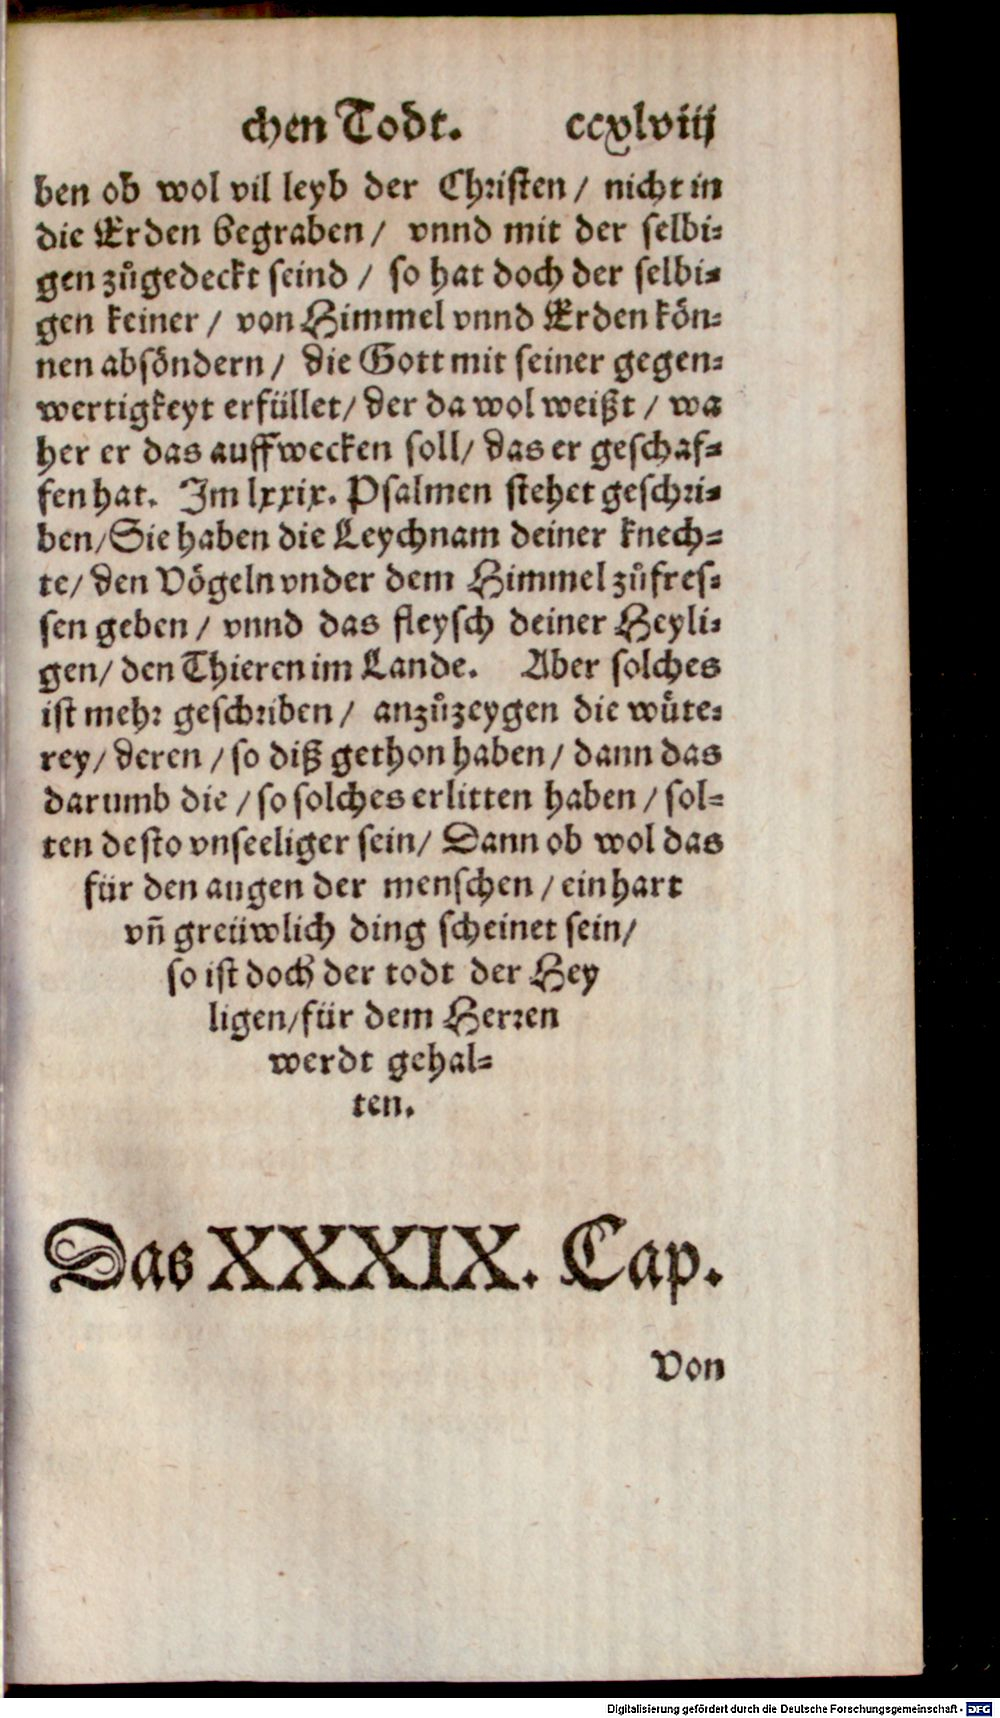 chen Todt. ccxlviij
ben ob wol vil leyb der Christen / nicht in
die Erden begraben / vnnd mit der selbi-
gen zůgedeckt seind / so hat doch der selbi-
gen keiner / von Himmel vnnd Erden kön-
nen absöndern / die Gott mit seiner gegen-
wertigkeyt erfüllet / der da wol weißt / wa
her er das auffwecken soll / das er geschaf-
fen hat. Im lxxix. Psalmen stehet geschri-
ben / Sie haben die Leychnam deiner knech-
te / den Vögeln vnder dem Himmel zůfres-
sen geben / vnnd das fleysch deiner Heyli-
gen / den Thieren im Lande. Aber solches
ist mehr geschriben / anzůzeygen die wůte-
rey / deren / so diß gethon haben / dann das
darumb die / so solches erlitten haben / sol-
ten desto vnseeliger sein / Dann ob wol das
für den augen der menschen / ein hart
vñ greüwlich ding scheinet sein /
so ist doch der todt der Hey
ligen / für dem Herren
werdt gehal-
ten.
Das XXXIX. Cap.
Von
Digitalisierung gefördert durch die Deutsche Forschungsgemeinschaft - DFG